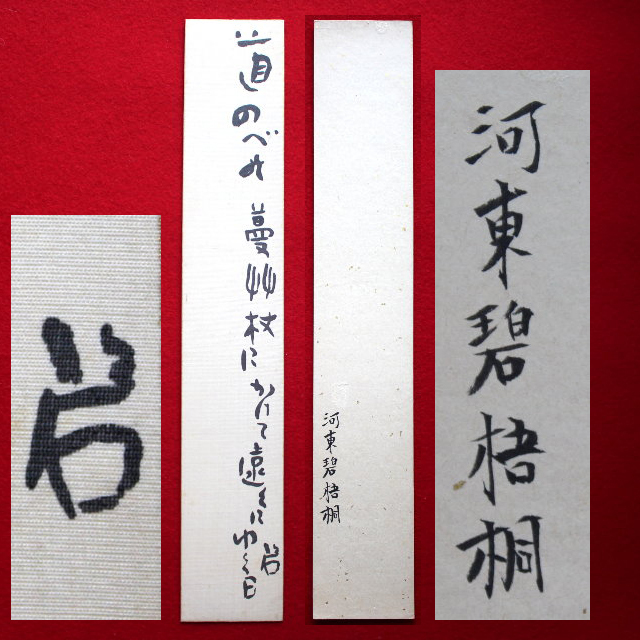 道のべの 蔓艸杖にかけて遠くにゆく日
碧
河東碧梧桐
河東碧梧桐
碧